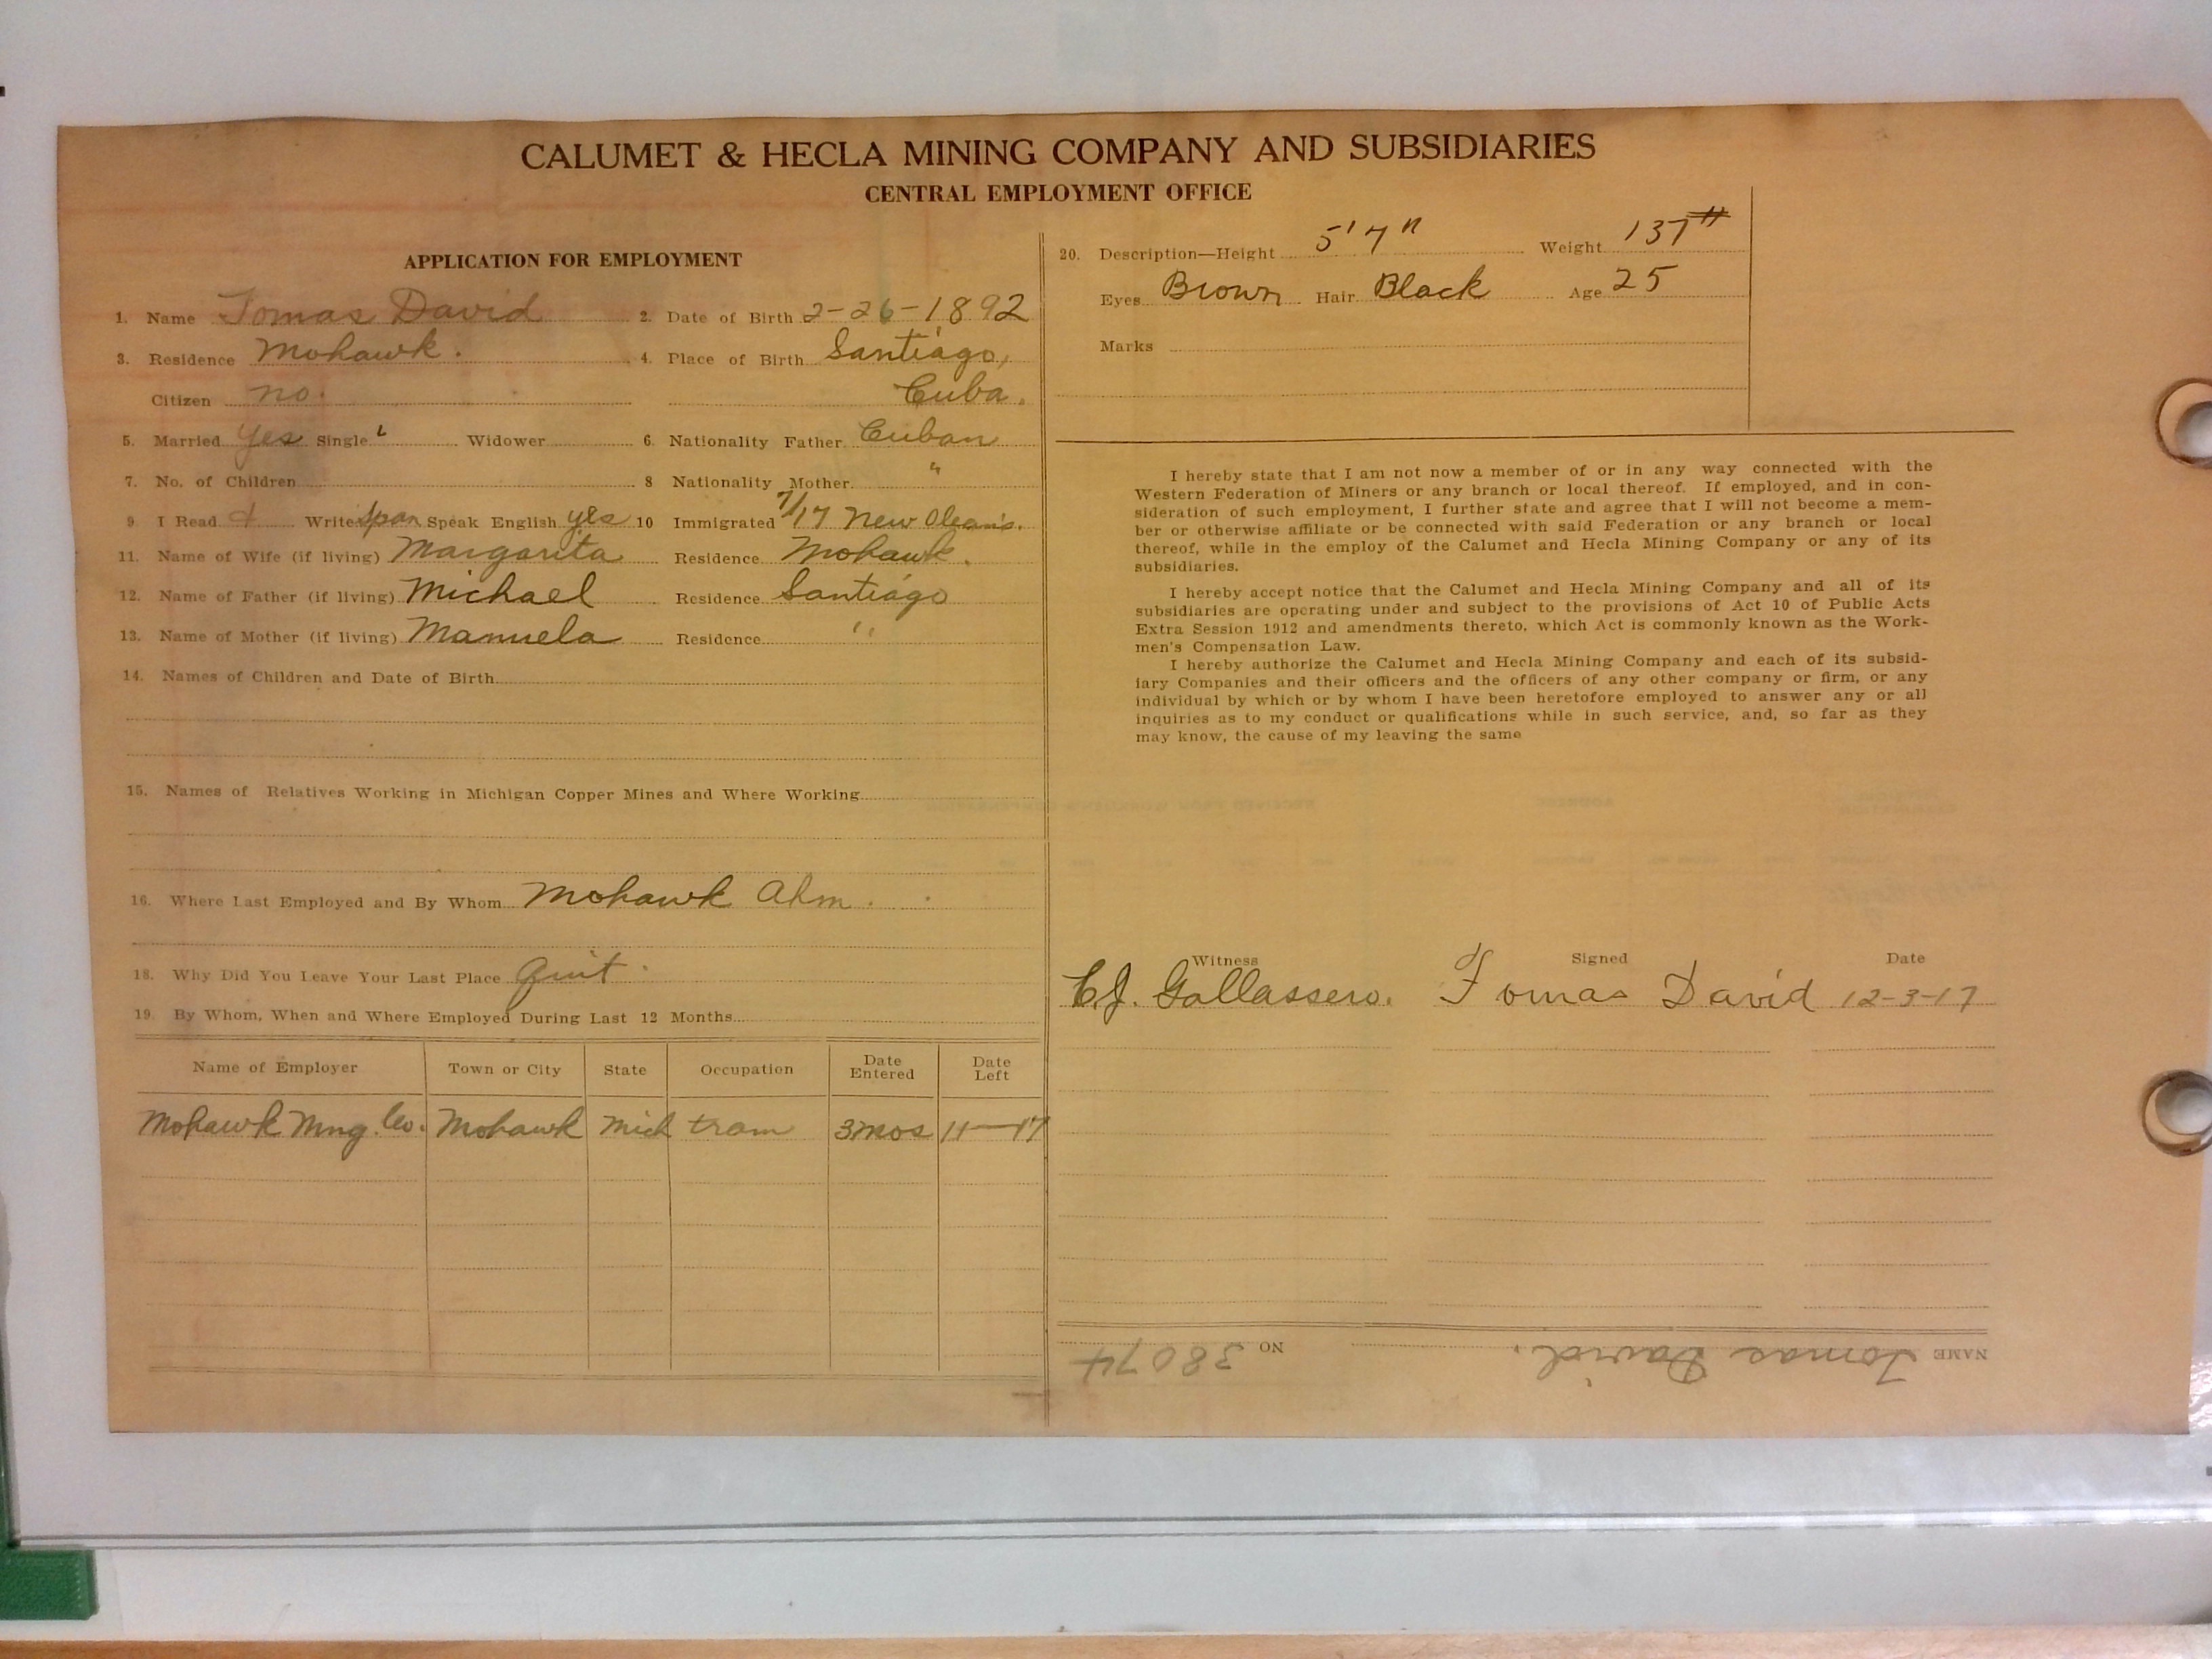 CALUMET & HECLA MINING COMPANY AND SUBSIDIARIES
CENTRAL EMPLOYMENT OFFICE
APPLICATION FOR EMPLOYMENT
1. Name Tomas David 2. Date of Birth 2-26-1892
3. Residence Mohawk. 4. Place of Birth Santiago,
Citizen no. Cuba.
5. Married Yes Single Widower 6. Nationality Father Cuban
7. No. of Children 8 Nationality Mother "
9. I Read & Write Span Speak English yes 10 Immigrated 7/17 New Olean's.
11. Name of Wife (if living) Margarita Residence Mohawk.
12. Name of Father (if living) Michael Residence Santiago
13. Name of Mother (if living) Manuela Residence "
14. Names of Children and Date of Birth
15. Names of Relatives Working in Michigan Copper Mines and Where Working
16. Where Last Employed and By Whom Mohawk Ahm.
18. Why Did You Leave Your Last Place Quit.
19. By Whom, When and Where Employed During Last 12 Months
Name of Employer Town or City State Occupation Date Entered Date Left
Mohawk Mng. Co. Mohawk Mich tram 3 mos 11-17
20. Description—Height 5'7" Weight 137#
Eyes Brown Hair Black Age 25
Marks
I hereby state that I am not now a member of or in any way connected with the
Western Federation of Miners or any branch or local thereof. If employed, and in con-
sideration of such employment, I further state and agree that I will not become a mem-
ber or otherwise affiliate or be connected with said Federation or any branch or local
thereof, while in the employ of the Calumet and Hecla Mining Company or any of its
subsidiaries.
I hereby accept notice that the Calumet and Hecla Mining Company and all of its
subsidiaries are operating under and subject to the provisions of Act 10 of Public Acts
Extra Session 1912 and amendments thereto, which Act is commonly known as the Work-
men's Compensation Law.
I hereby authorize the Calumet and Hecla Mining Company and each of its subsid-
iary Companies and their officers and the officers of any other company or firm, or any
individual by which or by whom I have been heretofore employed to answer any or all
inquiries as to my conduct or qualifications while in such service, and, so far as they
may know, the cause of my leaving the same
Witness Signed Date
C.J. Gallassero. Tomas David 12-3-17
NAME Tomas David. NO 38074